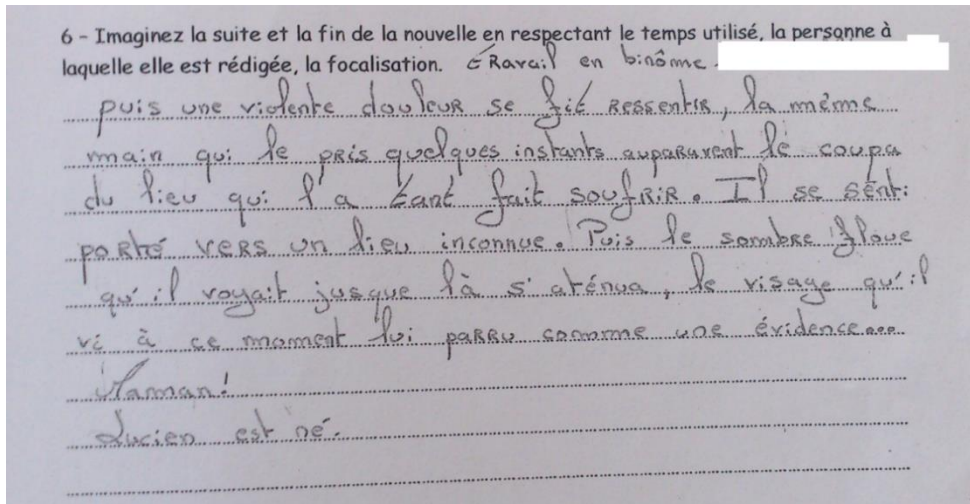 6 - Imaginez la suite et la fin de la nouvelle en respectant le temps utilisé, la personne à
laquelle elle est rédigée, la focalisation. Travail en binôme.
puis une violente douleur se fit ressentir, la même
main qui le pris quelques instants auparavent le coupa
du lieu qui l'a tant fait soufrir. Il se senti
porté vers un lieu inconnue. Puis le sombre floue
qu'il voyait jusque là s'aténua, le visage qu'il
vi à ce moment lui parru comme une évidence...
Maman!
Lucien est né.